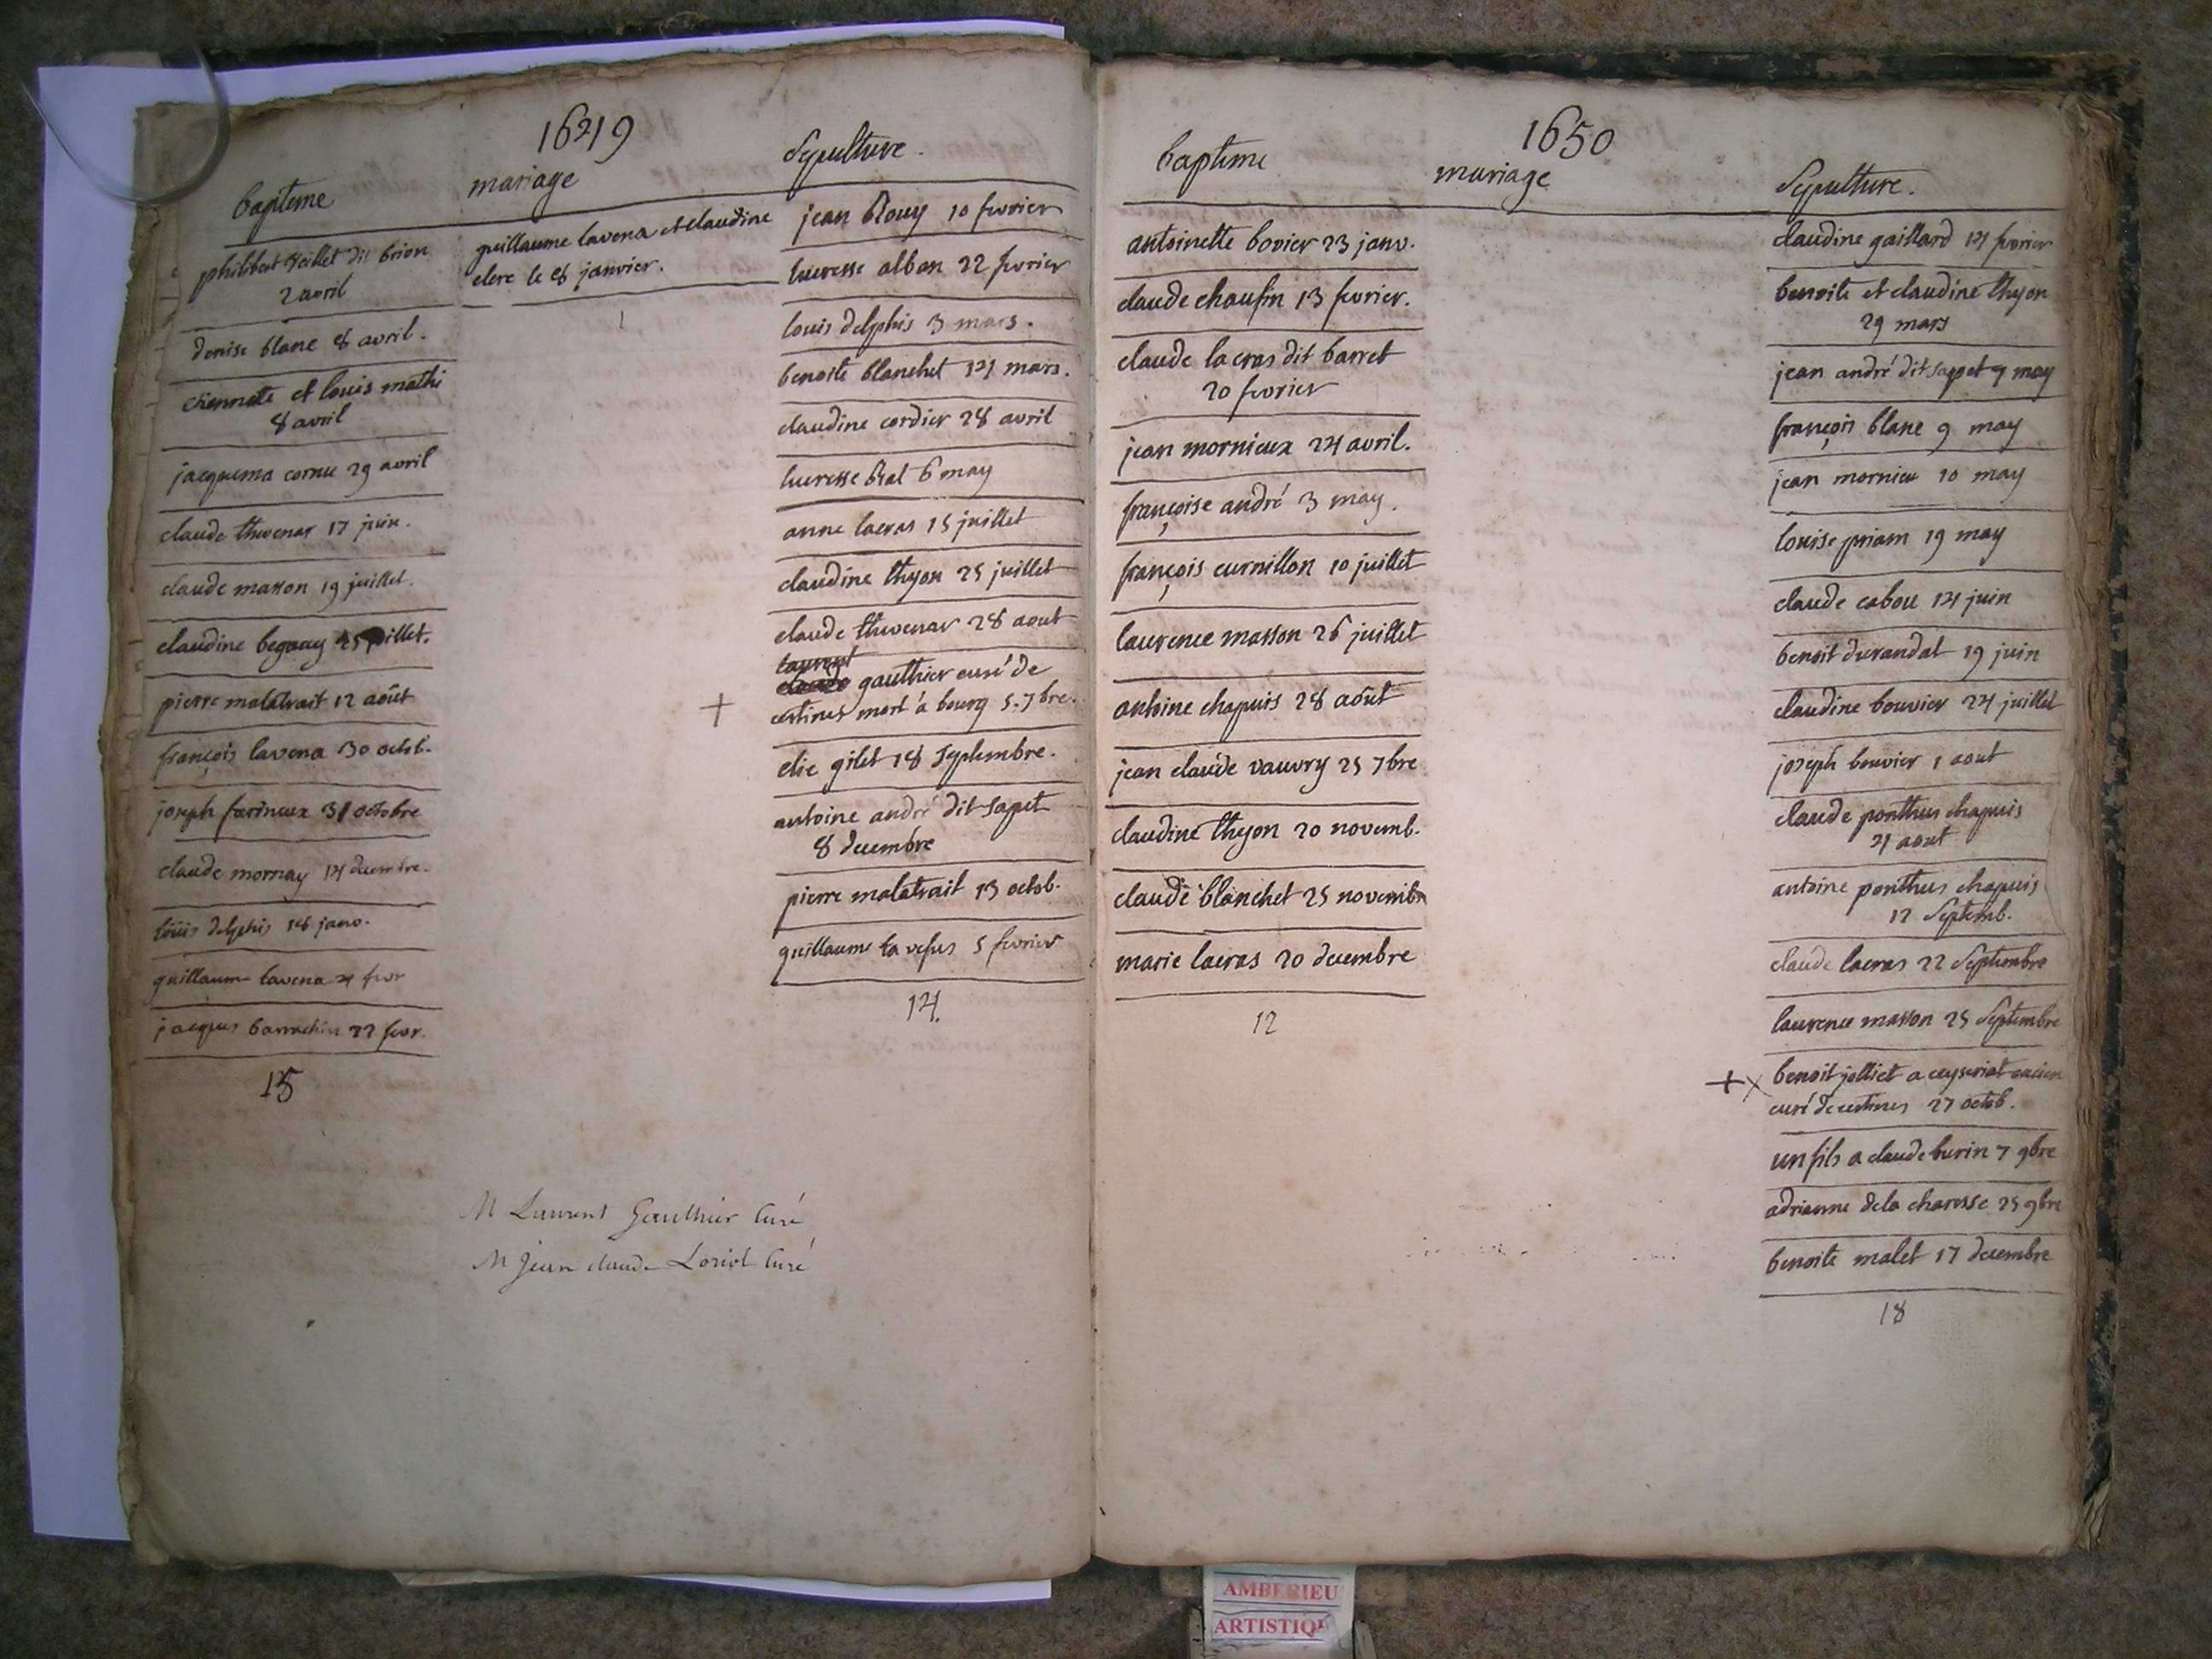 1649
bapteme
philibert veillet dit brion
2 avril
denise blanc 8 avril.
etiennette et louis mathi
8 avril
jacquema cornu 29 avril
claude thevenar 17 juin.
claude masson 19 juillet.
claudine begouy 25 juillet.
pierre malatrait 12 août
françois lavena 30 octob.
joseph farineux 31 octobre
claude mornay 14 decembre.
louis delphis 18 janv.
guillaume lavena 4 fevr
jacques barrachin 22 fevr.
15
mariage
guillaume lavena et claudine
clerc le 8 janvier.
1
Sepulture.
jean blouy 10 fevrier
lucresse alban 22 fevrier
louis delphis 3 mars.
benoite blanchet 14 mars.
claudine cordier 28 avril
lucresse bral 6 may
anne lacras 15 juillet
claudine thyon 25 juillet
claude thevenar 28 aout
laurent
gauthier curé de
certines mort à bourg 5. 7bre.
elie gilet 18 Septembre.
antoine andré dit sapet
8 decembre
pierre malatrait 13 octob.
guillaume la 5 fevrier
14.
M Laurent Gauthier Curé
M jean claude Loriol Curé
1650
bapteme
antoinette bovier 23 janv.
claude chaufin 13 fevrier.
claude lacras dit barret
20 fevrier
jean mornieux 24 avril.
françoise andré 3 may.
françois curnillon 10 juillet
laurence masson 26 juillet
antoine chapuis 28 août
jean claude vauvry 25 7bre
claudine thyon 20 novemb.
claude blanchet 25 novembr
marie lacras 20 decembre
12
mariage
Sepulture.
claudine gaillard 14 fevrier
benoite et claudine thyon
29 mars
jean andré dit sappet 9 may
françois blanc 9 may
jean mornieu 10 may
louise priam 19 may
claude cabou 14 juin
benoit durandal 19 juin
claudine bouvier 24 juillet
joseph bouvier 1 aout
claude ponthus chapuis
4 aout
antoine ponthus chapuis
12 Septemb.
claude lacras 22 Septembre
laurence masson 25 Septembre
benoit jolliet a ceyseriat ancien
curé de certines 27 octob.
un fils a claude burin 7 9bre
adrianne dela charesse 25 9bre
benoite malet 17 decembre
18
AMBERIEU
ARTISTIQ